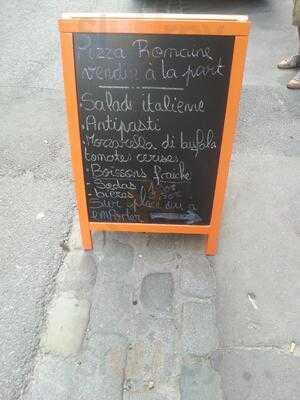 Pizza Romaine
vendu à la part
- Salade italienne
- Antipasti
- Mozzarella di bufala
tomates cerises
- Boissons fraîche
- Sodas
- bières
Sur place ou à
emporter